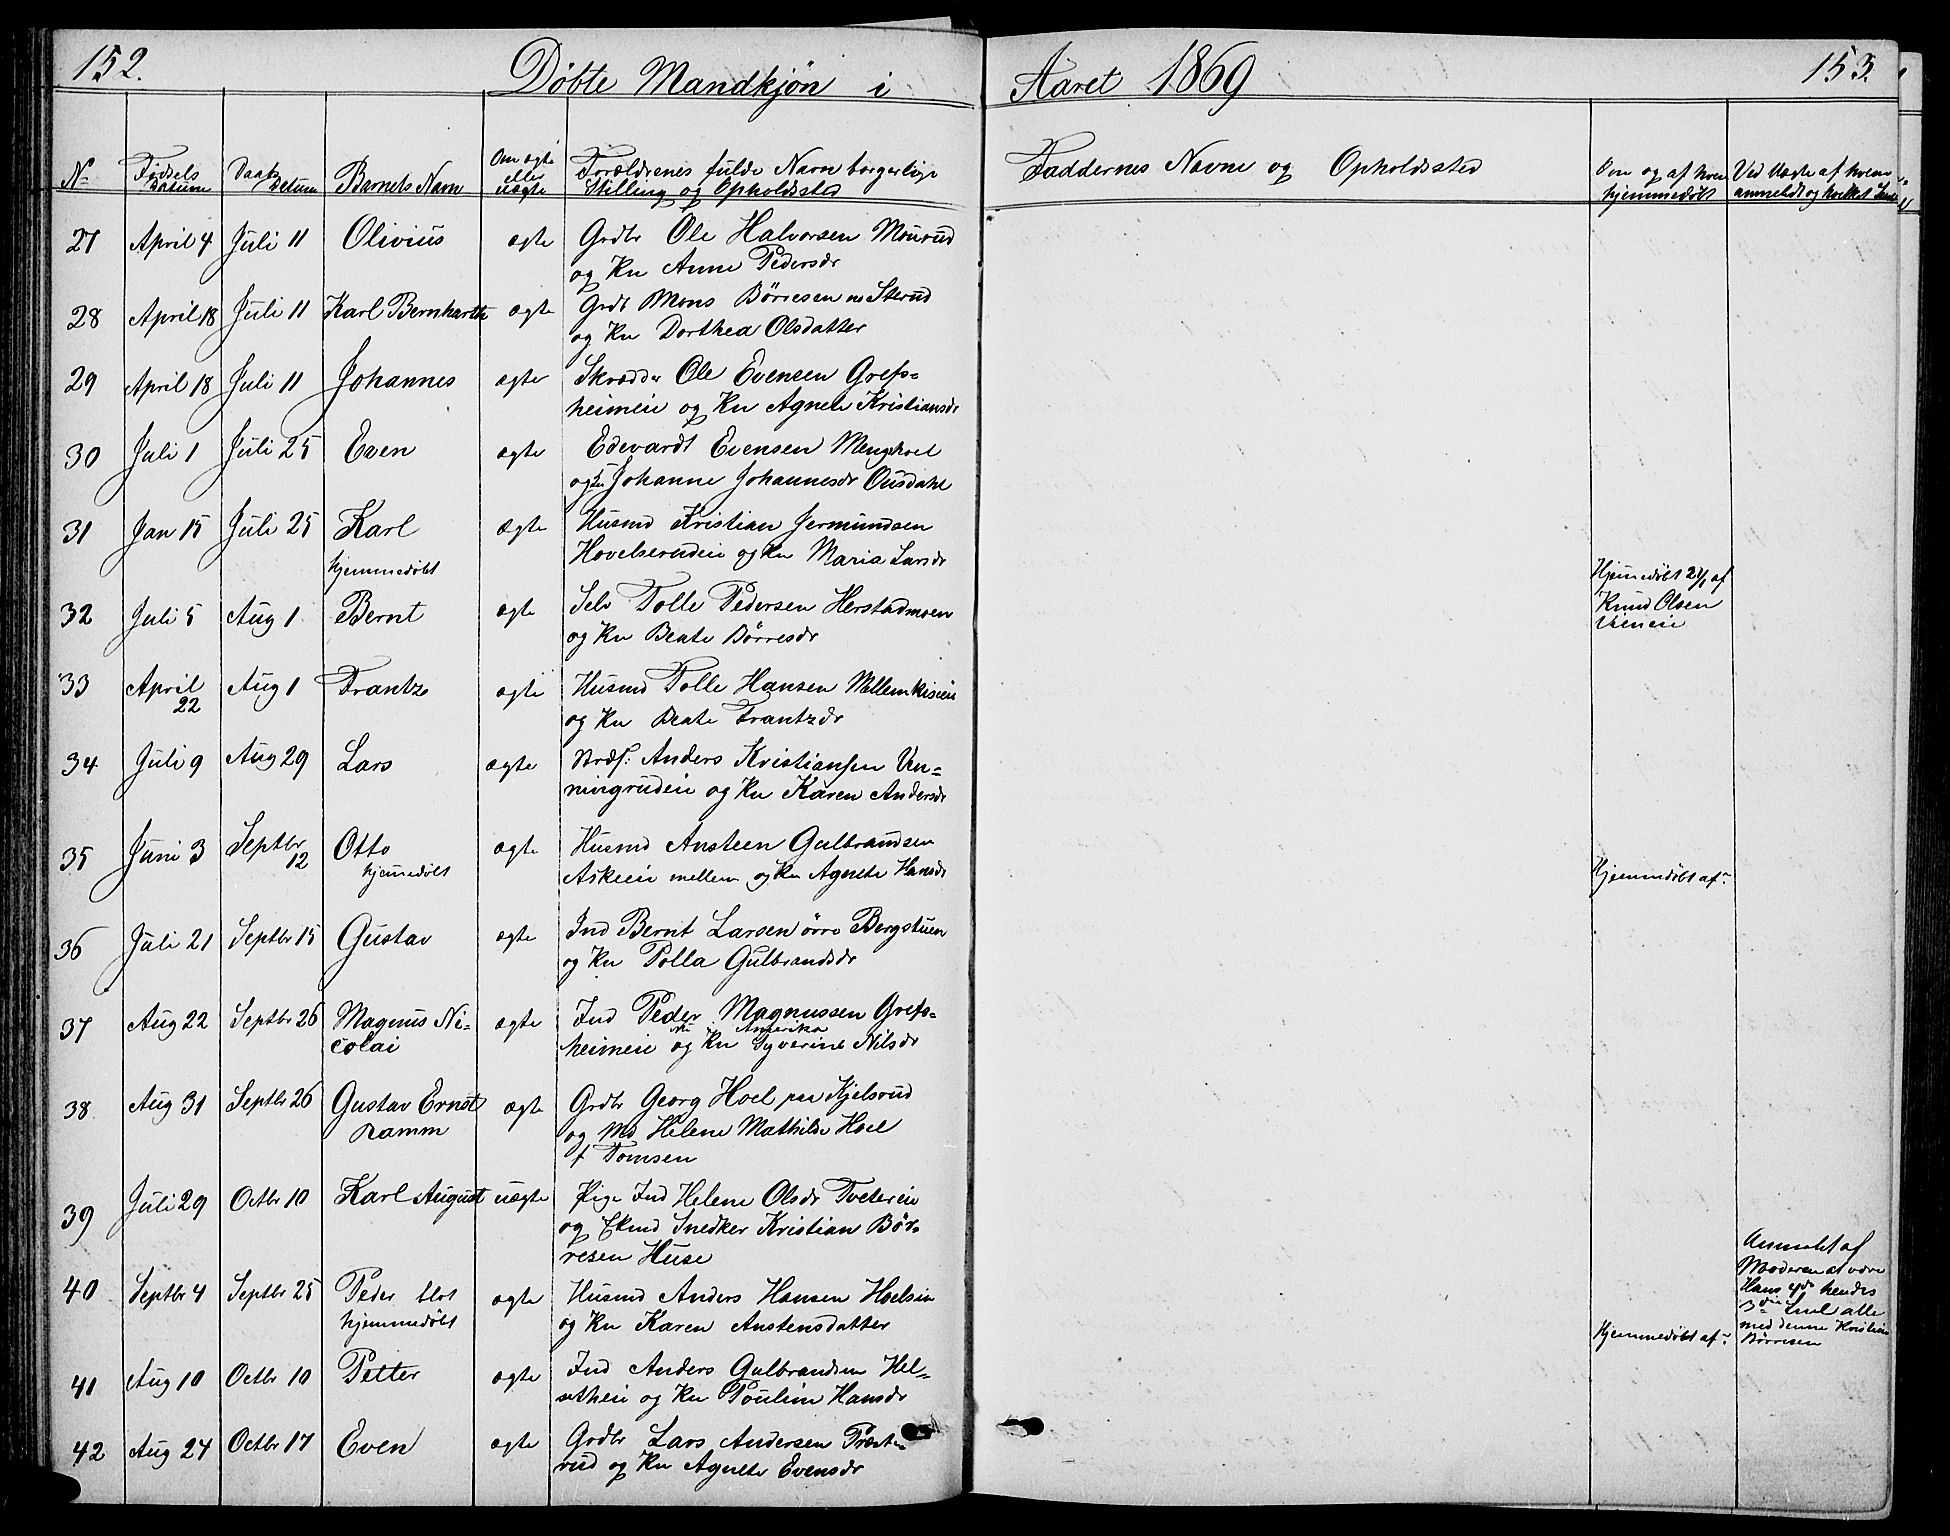 152.
Døbte Mandkjøn i
Aaret 1869
153.
No Fødsels Datum Daabs Datum Barnets Navn Om ægte eller uægte Forældrenes fulde Navn borgerlige Stilling og Opholdssted
Faddernes Navne og Opholdssted
Om og af hvem hjemmedøbt
Ved Uægte af hvem anmeldt og hvilket
27 April 4 Juli 11 Olivius ægte Grdbr Ole Halvorsen Mourud
og Kn Anne Pedersdr
28 April 18 Juli 11 Karl Bernharth ægte Grdb Mons Børresen ne Sterud
og Kn Dorthea Olsdatter
29 April 18 Juli 11 Johannes ægte Skrædder Ole Evensen Grefs=
heimeie og Kn Agnete Kristiansdr
30 Juli 1 Juli 25 Even ægte Edevardt Evensen Mengshoel
og Kn Johanne Johannesdr Ousdahl
31 Jan 15 Juli 25 Karl ægte Husmd Kristian Jermundsen
hjemmedøbt Hovelserudeie og Kn Maria Larsdr
Hjemedøbt af
Knud Olsen
32 Juli 5 Aug 1 Bernt ægte Selv Tolle Pedersen Herstadmoen
og Kn Beate Børresdr
33 April 22 Aug 1 Frantz ægte Husmd Tolle Hansen Mellemkiseie
og Kn Beate Frantzdr
34 Juli 9 Aug 29 Lars ægte Anders Kristiansen Ven=
ningrudeie og Kn Karen Andersdr
35 Juni 3 Septbr 12 Otto ægte Husmd Ansteen Gulbrandsen
hjemedøbt Askeeie mellem og Kn Agnete Hansdr
Hjemmedøbt af
36 Juli 21 Septbr 15 Gustav ægte Ind Bernt Larsen øvre Bergstuen
og Kn Polla Gulbrandsdr
37 Aug 22 Septbr 26 Magnus Ni= ægte Ind Peder Magnussen Grefs=
colai nu i Amerika
heimeie og Kn Syverine Nilsdr
38 Aug 31 Septbr 26 Gustav Ernst ægte Grdbr Georg Hoel paa Kjelsrud
Ramm og Md Helene Mathilde Hoel
f Tomsen
39 Juli 29 Octbr 10 Karl August uægte Pige Ind Helene Olsdr Tvetereie
og Ekmd Snedker Kristian Bør=
resen Huse
Anmeldt af
Moderen at være
Hans 4de hendes
3die Leiel alle
med denne Kristian
Børresen
40 Septbr 4 Septbr 25 Peder blot ægte Husmd Anders Hansen Hoelseie
hjemmedøbt og Kn Karen Anstensdatter
Hjemmedøbt af
41 Aug 10 Octbr 10 Petter ægte Ind Anders Gulbrandsen Hel=
setheie og Kn Pouline Hansdr
42 Aug 24 Octbr 17 Even ægte Grdbr Lars Andersen Præste
rud og Kn Agnete Evensdr